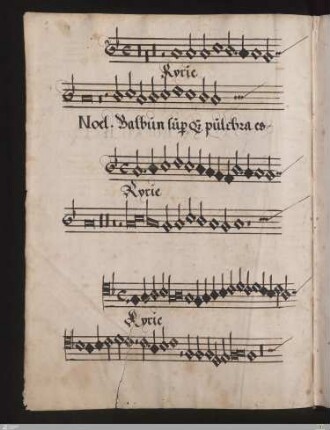 Kyrie
Noel. Balbun sup Q pulchra es.
Kyrie
Kyrie